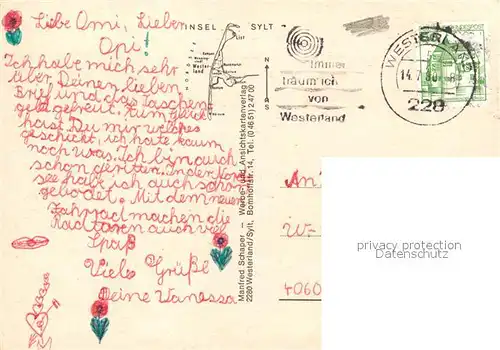 Liebe Omi, Lieber
Opi!
Ich habe mich sehr
über Deinen lieben
Brief und das Taschen
geld gefreut. Zum glück
hast Du mir welches
geschickt, ich hate kaum
noch was. Ich bin auch
schon geritten. In der Nord
see habe ich auch schon
gebadet. Mit dem neuen
Fahrrad machen die
Radtoren auch viel
Spaß
Viele Grüße
Deine Vanessa
INSEL SYLT
List
Kampen
Wenningstedt
Westerland
Hörnum
Manfred Schaper – Werbe- und Ansichtskartenverlag
2280 Westerland/Sylt, Bomhoffstr. 14, Tel. (0 46 51) 2 47 00
Immer
träum ich
von
Westerland
WESTERLAND
14.7.80
2280
An
W-
4060
privacy protection
Datenschutz